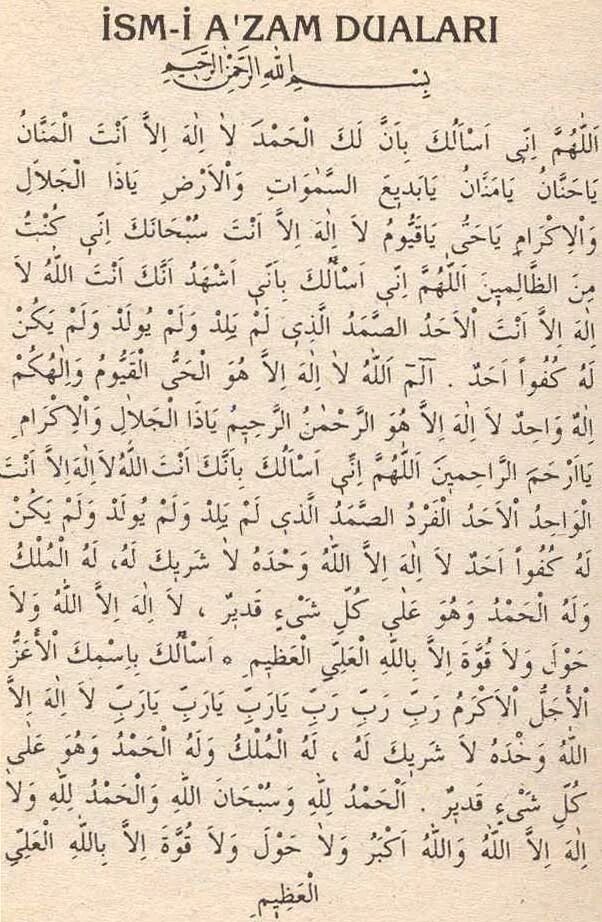 İSM-İ A'ZAM DUALARI
بِسْمِ اللهِ الرَّحْمٰنِ الرَّحِيمِ
اَللّٰهُمَّ اِنّٖى اَسْاَلُكَ بِاَنَّ لَكَ الْحَمْدَ لاَ اِلٰهَ اِلاَّ اَنْتَ الْمَنَّانُ
يَاحَنَّانُ يَامَنَّانُ يَابَدٖيعَ السَّمٰوَاتِ وَالْاَرْضِ يَاذَا الْجَلاَلِ
وَالْاِكْرَامِ يَاحَىُّ يَاقَيُّومُ لاَ اِلٰهَ اِلاَّ اَنْتَ سُبْحَانَكَ اِنّٖى كُنْتُ
مِنَ الظَّالِمٖينَ اَللّٰهُمَّ اِنّٖى اَسْاَلُكَ بِاَنّٖى اَشْهَدُ اَنَّكَ اَنْتَ اللّٰهُ لاَ
اِلٰهَ اِلاَّ اَنْتَ الْاَحَدُ الصَّمَدُ الَّذٖى لَمْ يَلِدْ وَلَمْ يُولَدْ وَلَمْ يَكُنْ
لَهُ كُفُواً اَحَدٌ . آلٓمٓ اَللّٰهُ لاَ اِلٰهَ اِلاَّ هُوَ الْحَىُّ الْقَيُّومُ وَاِلٰهُكُمْ
اِلٰهٌ وَاحِدٌ لاَ اِلٰهَ اِلاَّ هُوَ الرَّحْمٰنُ الرَّحٖيمُ يَاذَا الْجَلاَلِ وَالْاِكْرَامِ
يَااَرْحَمَ الرَّاحِمٖينَ اَللّٰهُمَّ اِنّٖى اَسْاَلُكَ بِاَنَّكَ اَنْتَ اللّٰهُ لاَ اِلٰهَ اِلاَّ اَنْتَ
الْوَاحِدُ الْاَحَدُ الْفَرْدُ الصَّمَدُ الَّذٖى لَمْ يَلِدْ وَلَمْ يُولَدْ وَلَمْ يَكُنْ
لَهُ كُفُواً اَحَدٌ لاَ اِلٰهَ اِلاَّ اللّٰهُ وَحْدَهُ لاَ شَرٖيكَ لَهُ، لَهُ الْمُلْكُ
وَلَهُ الْحَمْدُ وَهُوَ عَلٰى كُلِّ شَىْءٍ قَدٖيرٌ ، لاَ اِلٰهَ اِلاَّ اللّٰهُ وَلاَ
حَوْلَ وَلاَ قُوَّةَ اِلاَّ بِاللّٰهِ الْعَلِىِّ الْعَظٖيمِ ٥ اَسْاَلُكَ بِاسْمِكَ الْأَعَزُّ
الْأَجَلُّ الْاَكْرَمُ رَبِّ رَبِّ رَبِّ يَارَبِّ يَارَبِّ يَارَبِّ لاَ اِلٰهَ اِلاَّ
اللّٰهُ وَحْدَهُ لاَ شَرٖيكَ لَهُ ، لَهُ الْمُلْكُ وَلَهُ الْحَمْدُ وَهُوَ عَلٰى
كُلِّ شَىْءٍ قَدٖيرٌ . اَلْحَمْدُ لِلّٰهِ وَسُبْحَانَ اللّٰهِ وَالْحَمْدُ لِلّٰهِ وَلاَ
اِلٰهَ اِلاَّ اللّٰهُ وَاللّٰهُ اَكْبَرُ وَلاَ حَوْلَ وَلاَ قُوَّةَ اِلاَّ بِاللّٰهِ الْعَلِىِّ
الْعَظٖيمِ